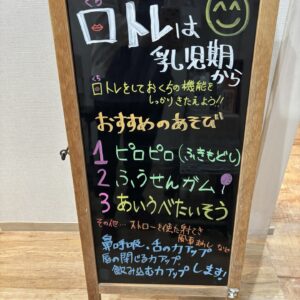 くち
口トレは
乳児期
から
くち
口トレをしておくちの機能を
しっかりきたえよう!!
おすすめのあそび
1 ピロピロ(ふきもどし)
2 ふうせんガム
3 あいうべたいそう
その他… ストローを使た
風車まわし など
鼻呼吸、舌の力アップ
唇の閉じる力アップ
飲み込む力アップ します!